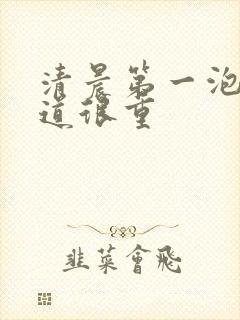 清晨第一泡
道很重
韭菜會飛